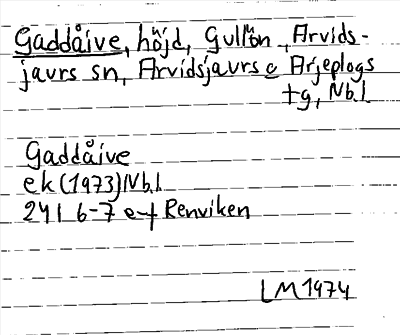 Gaddåive, höjd, Gullön, Arvids-
jaurs sn, Arvidsjaurs o Arjeplogs
tg, Nb.l
Gaddåive
ek (1973) Nb.l
24I 6-7 e-f Renviken
LM 1974